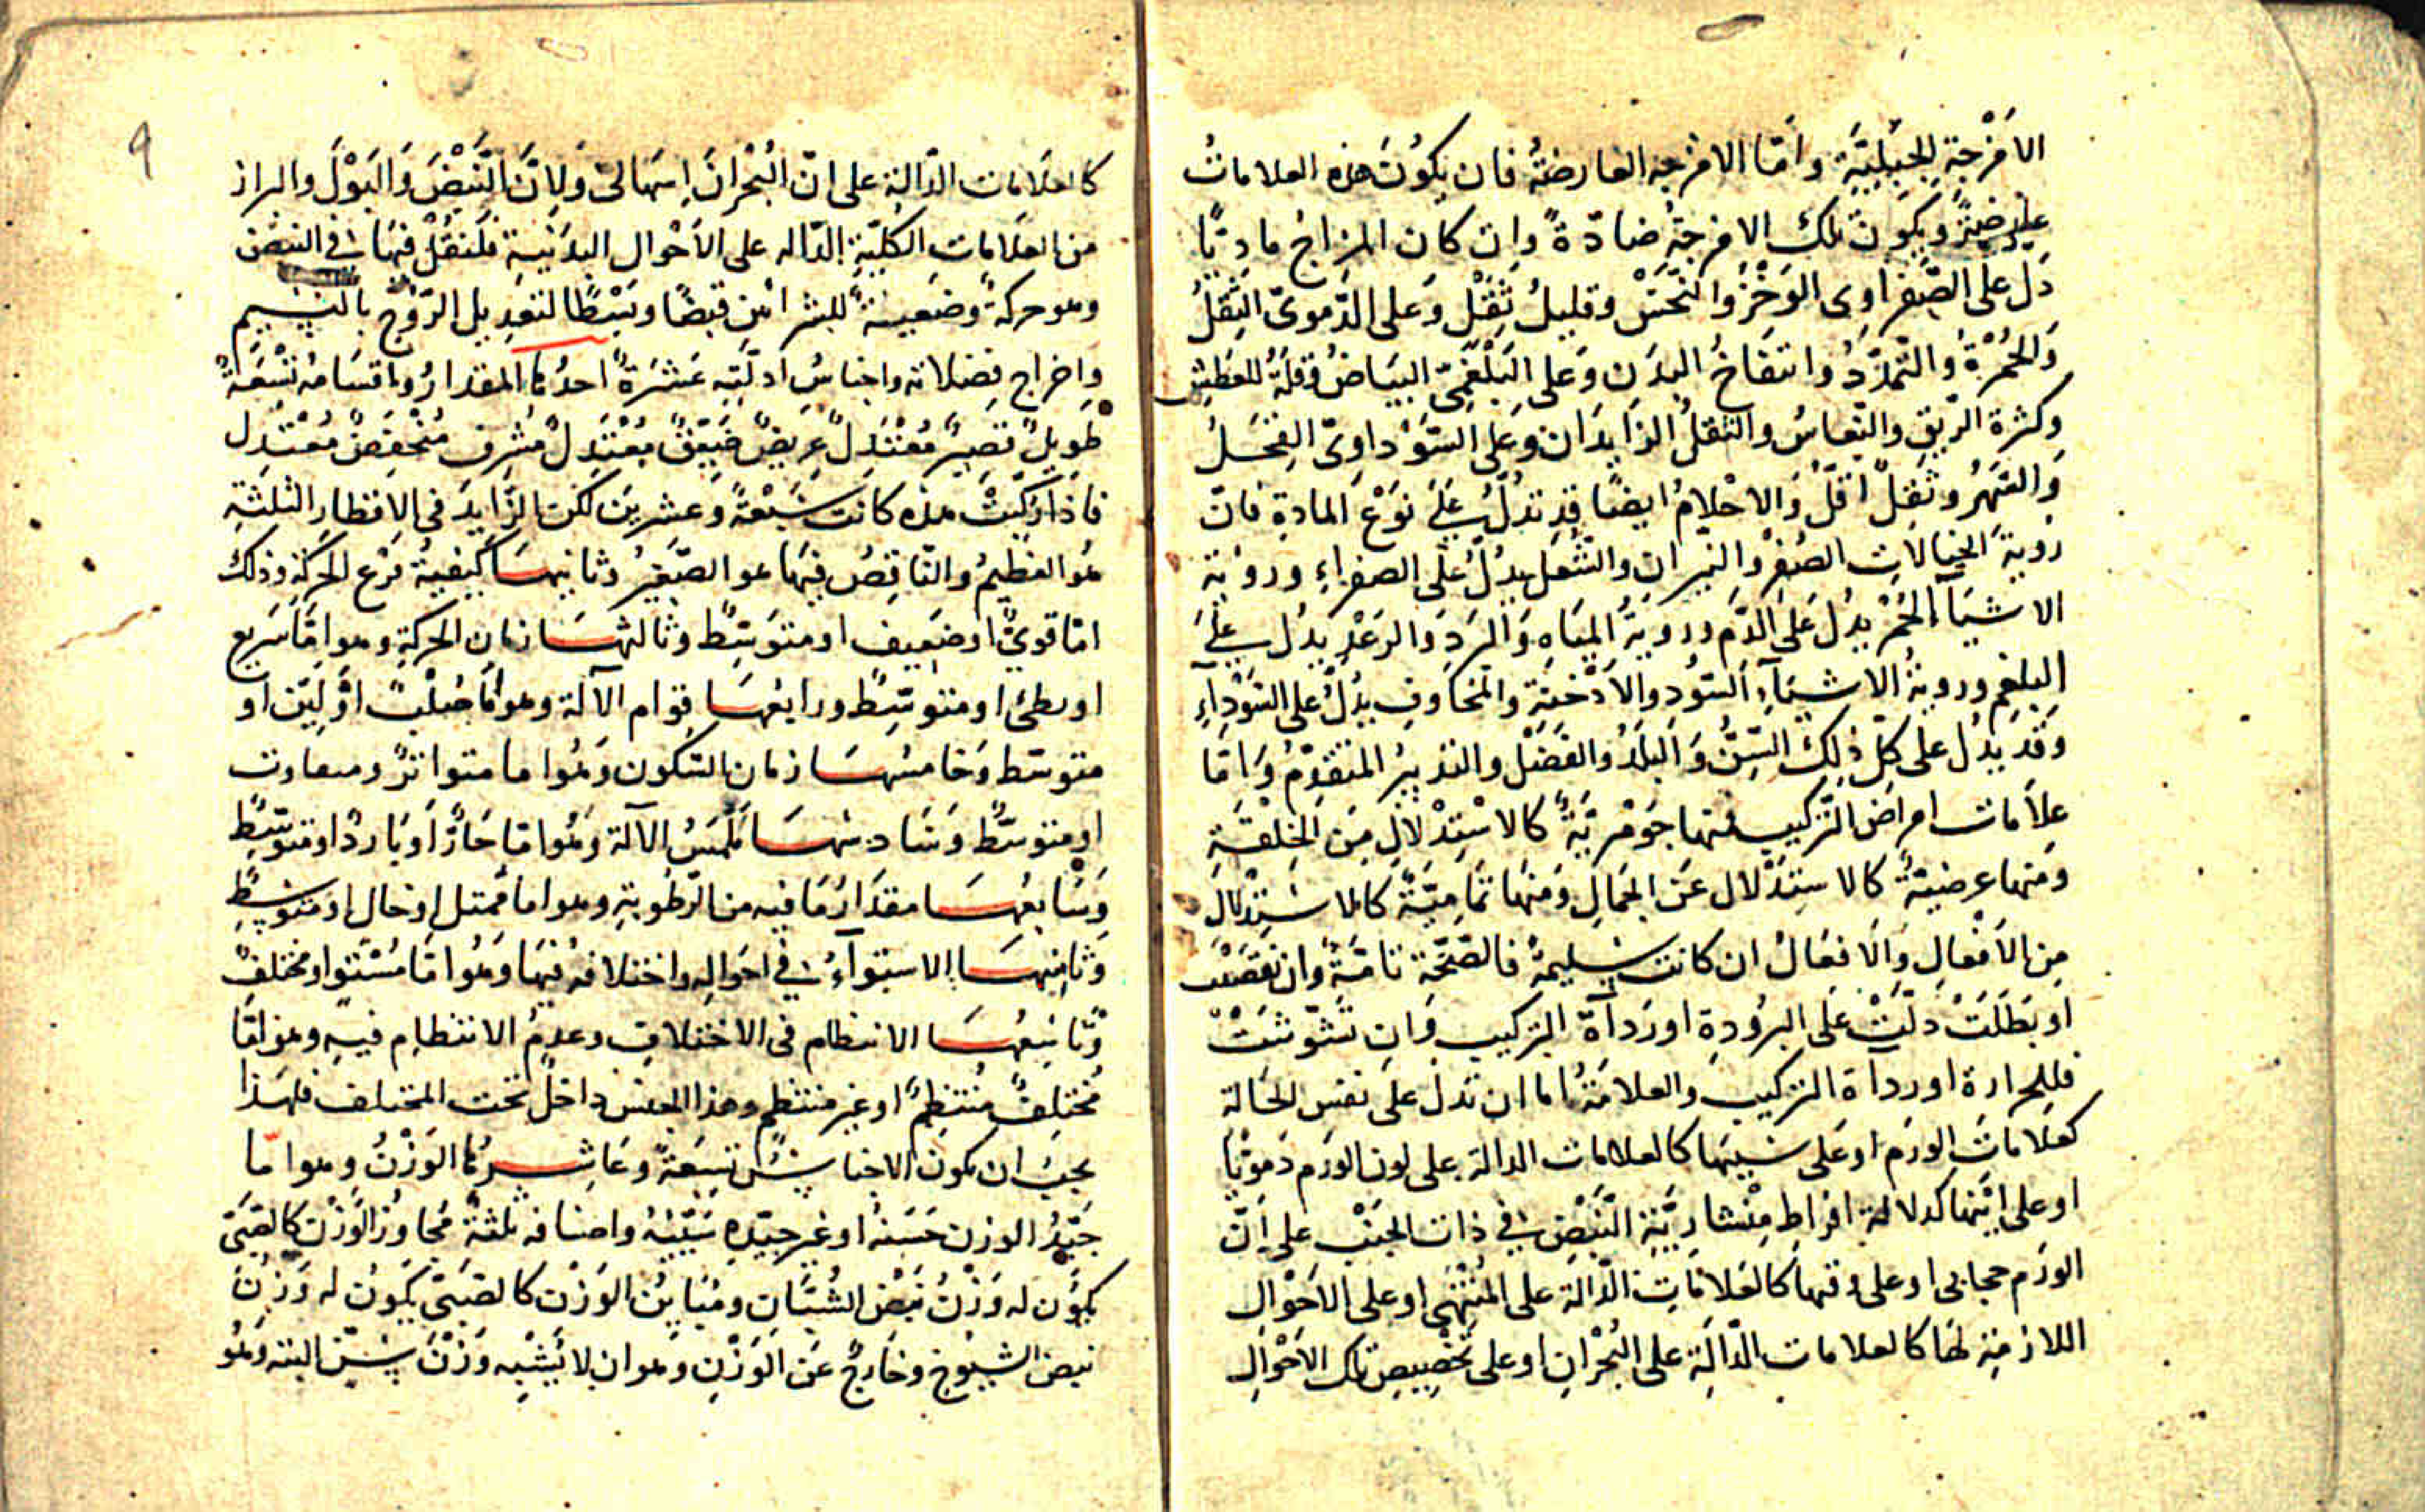 الاَمْزجَةِ الجِبِلِيَّةِ وامّا الامزجه العارضةُ فان يكُوُنَ هذه العلاماتُ
عارضيَّةً ويكون تلك الامزجَةُ ضادّةً وان كان المزاجُ مادّيًا
دَل على الصَّفراوى الوَخْزُ والنَّخسُ وقليلُ ثِقْلٍ وعلى الدَّموىّ الثِقلُ
والحُمْرَةُ والتَّمدّدُ وانتفاخُ البدَنِ وَعلى البَلْغَمِىّ البيَاضُ وقلّةُ العطشِ
وكثرة الرّيقِ والنّعاسُ والثقلُ الزايدَان وعلى السَّوْداوىّ القحَلُ
والسَّهَرُ وثقلٌ اقلّ وَالاحْلامُ ايضًا قد تدُلُّ علَى نَوْعِ المادةِ فانّ
رويةَ الخيالات الصُفْرِ والنّيران والشُّعل يدُلُّ على الصفراءِ ورويَة
الاشيآءِ الحُمْرِ يدُل عَلى الدّم ورويَةُ الميَاهِ وَالبرَدِ والرعْدِ يدُل علَى
البلغم ورويةُ الاشيآءِ السّوُد والاَدْخِنَةِ والمخَاوفِ يدُلّ على السَّوْدآءِ
وقد يدُل على كلّ ذلكَ السّنُّ وَالبلَدُ والفَصْل والتدبيرُ المتقدّمُ وَامّا
علاَمات امراض التّركيب فمنها جَوْهريَّةٌ كالاسْتِدْلالِ مِنَ الخِلقَةِ
ومنها عرضيَّةٌ كالاستِدْلال عَن الجَمالِ وَمنهَا تمَاميَّةٌ كالاسْتِدْلالِ
مِن الاَفعالِ والاَفعَالُ ان كانت سليمةً فالصّحَّة تامّةٌ وان نقصَت
او بطَلَتْ دلّتْ على البرُودةِ اورَدآةِ التركيبِ وَان تَشَوّشتْ
فللحرارة اورَدآةِ التركيب والعلامَةُ اما ان تدلّ على نفسِ الحَالة
كعلامَاتِ الورَم اوعَلى سَببَها كالعلامات الدالة على لون الورَم دمَويًا
اوعلى ايّنها كدلالة افراطِ مِنْشاريَّةِ النَّبْضِ فى ذات الجَنْبِ على انّ
الورَم حجابى اوعلى وقتها كالعَلامات الدّالّةِ على المُنْتَهى اوعلى الاَحوَال
اللازمَةِ لهَا كالعلامات الدّالّةِ على البُحْران اوعلى تخْصِيصِ تلك الاَحْوالِ
٩
كالعلامات الدّالّةِ على انّ البُحْرانَ اِسهَالىّ وَلِانَّ النَّبْضَ وَالبَوْلَ والبراز
من العلاَمات الكليّةِ الدّاله على الاَحْوال البدَنيّةِ فلنَقُلْ فيهَا فى النبض
وهوحركةٌ وضعيّةٌ للشرائين قبضًا وبَسْطًا لتعديل الرّوْحِ بالنّسيم
واخراجِ فضلاته واجناسُ ادلّتِه عَشرَةٌ احدُها المقدارُ واقسَامُه تسْعَةٌ
طويلٌ قصيرٌ مُعْتدِلٌ عريضٌ ضَيّقٌ مُعْتَدِلٌ مُشرفٌ مُنْخفِضٌ مُعْتَدِل
فاذا رُكّبتْ هذه كانت سَبْعَةً وعشرين لكن الزّايدَ فى الاقطار الثلثة
هو العظيمُ والنّاقِصُ فيهَا هو الصّغيرُ وثانيهَا كيفيةُ قرْع الحركة وذلك
امّا قوىٌّ او ضعيف او متوَسّط وثالثهَا زمان الحركةِ وهو امّا سَريع
او بطئ او متوسّط ورابعُهَا قِوام الآلة وهو امّا صُلْبٌ اوْ ليّن او
متوسّط وَخَامسُهَا زمان السّكون وهُوَ اما متواترٌ ومتفاوت
او متوسّط وَسَادسُهَا مَلْمَسُ الآلة وهُوَ امّا حَارٌّ اوْ بَاردٌ او متوسّط
وسَابعُهَا مقدَارُ مَا فيه من الرّطوبةِ وهو اما ممتل او خال او متوسّط
وثامِنهَا الاستوآءُ فى احوَاله واختلافُه فيهَا وهُوَ امّا مُسْتَوٍ او مختلفٌ
وتَاسِعُهَا الانتظام فى الاختلاف وعدمُ الانتظام فيه وهو امّا
مُختلفٌ مُنتظِمٌ او غير منتظم وهذا الجنس داخلٌ تحت المختلف فلهذا
يجبُ ان يكون الاجناسُ تِسعَةً وعَاشرُها الوَزْنُ وهو امّا
جَيّدُ الوزن حَسَنُه او غير جيّدِه سَيّئُه واصنافه ثلثةٌ مُجَاوزُ الوَزْن كالصّبىّ
يكوُن له وَزْنُ نَبْض الشُّبَّان ومُبَاينُ الوَزْن كالصَبىّ يكوُن له وَزنُ
نبض الشيُوخِ وخارجٌ عَن الوَزْنِ وهو ان لا يُشْبِه وَزْنَ سِنّ البتّه وهُو